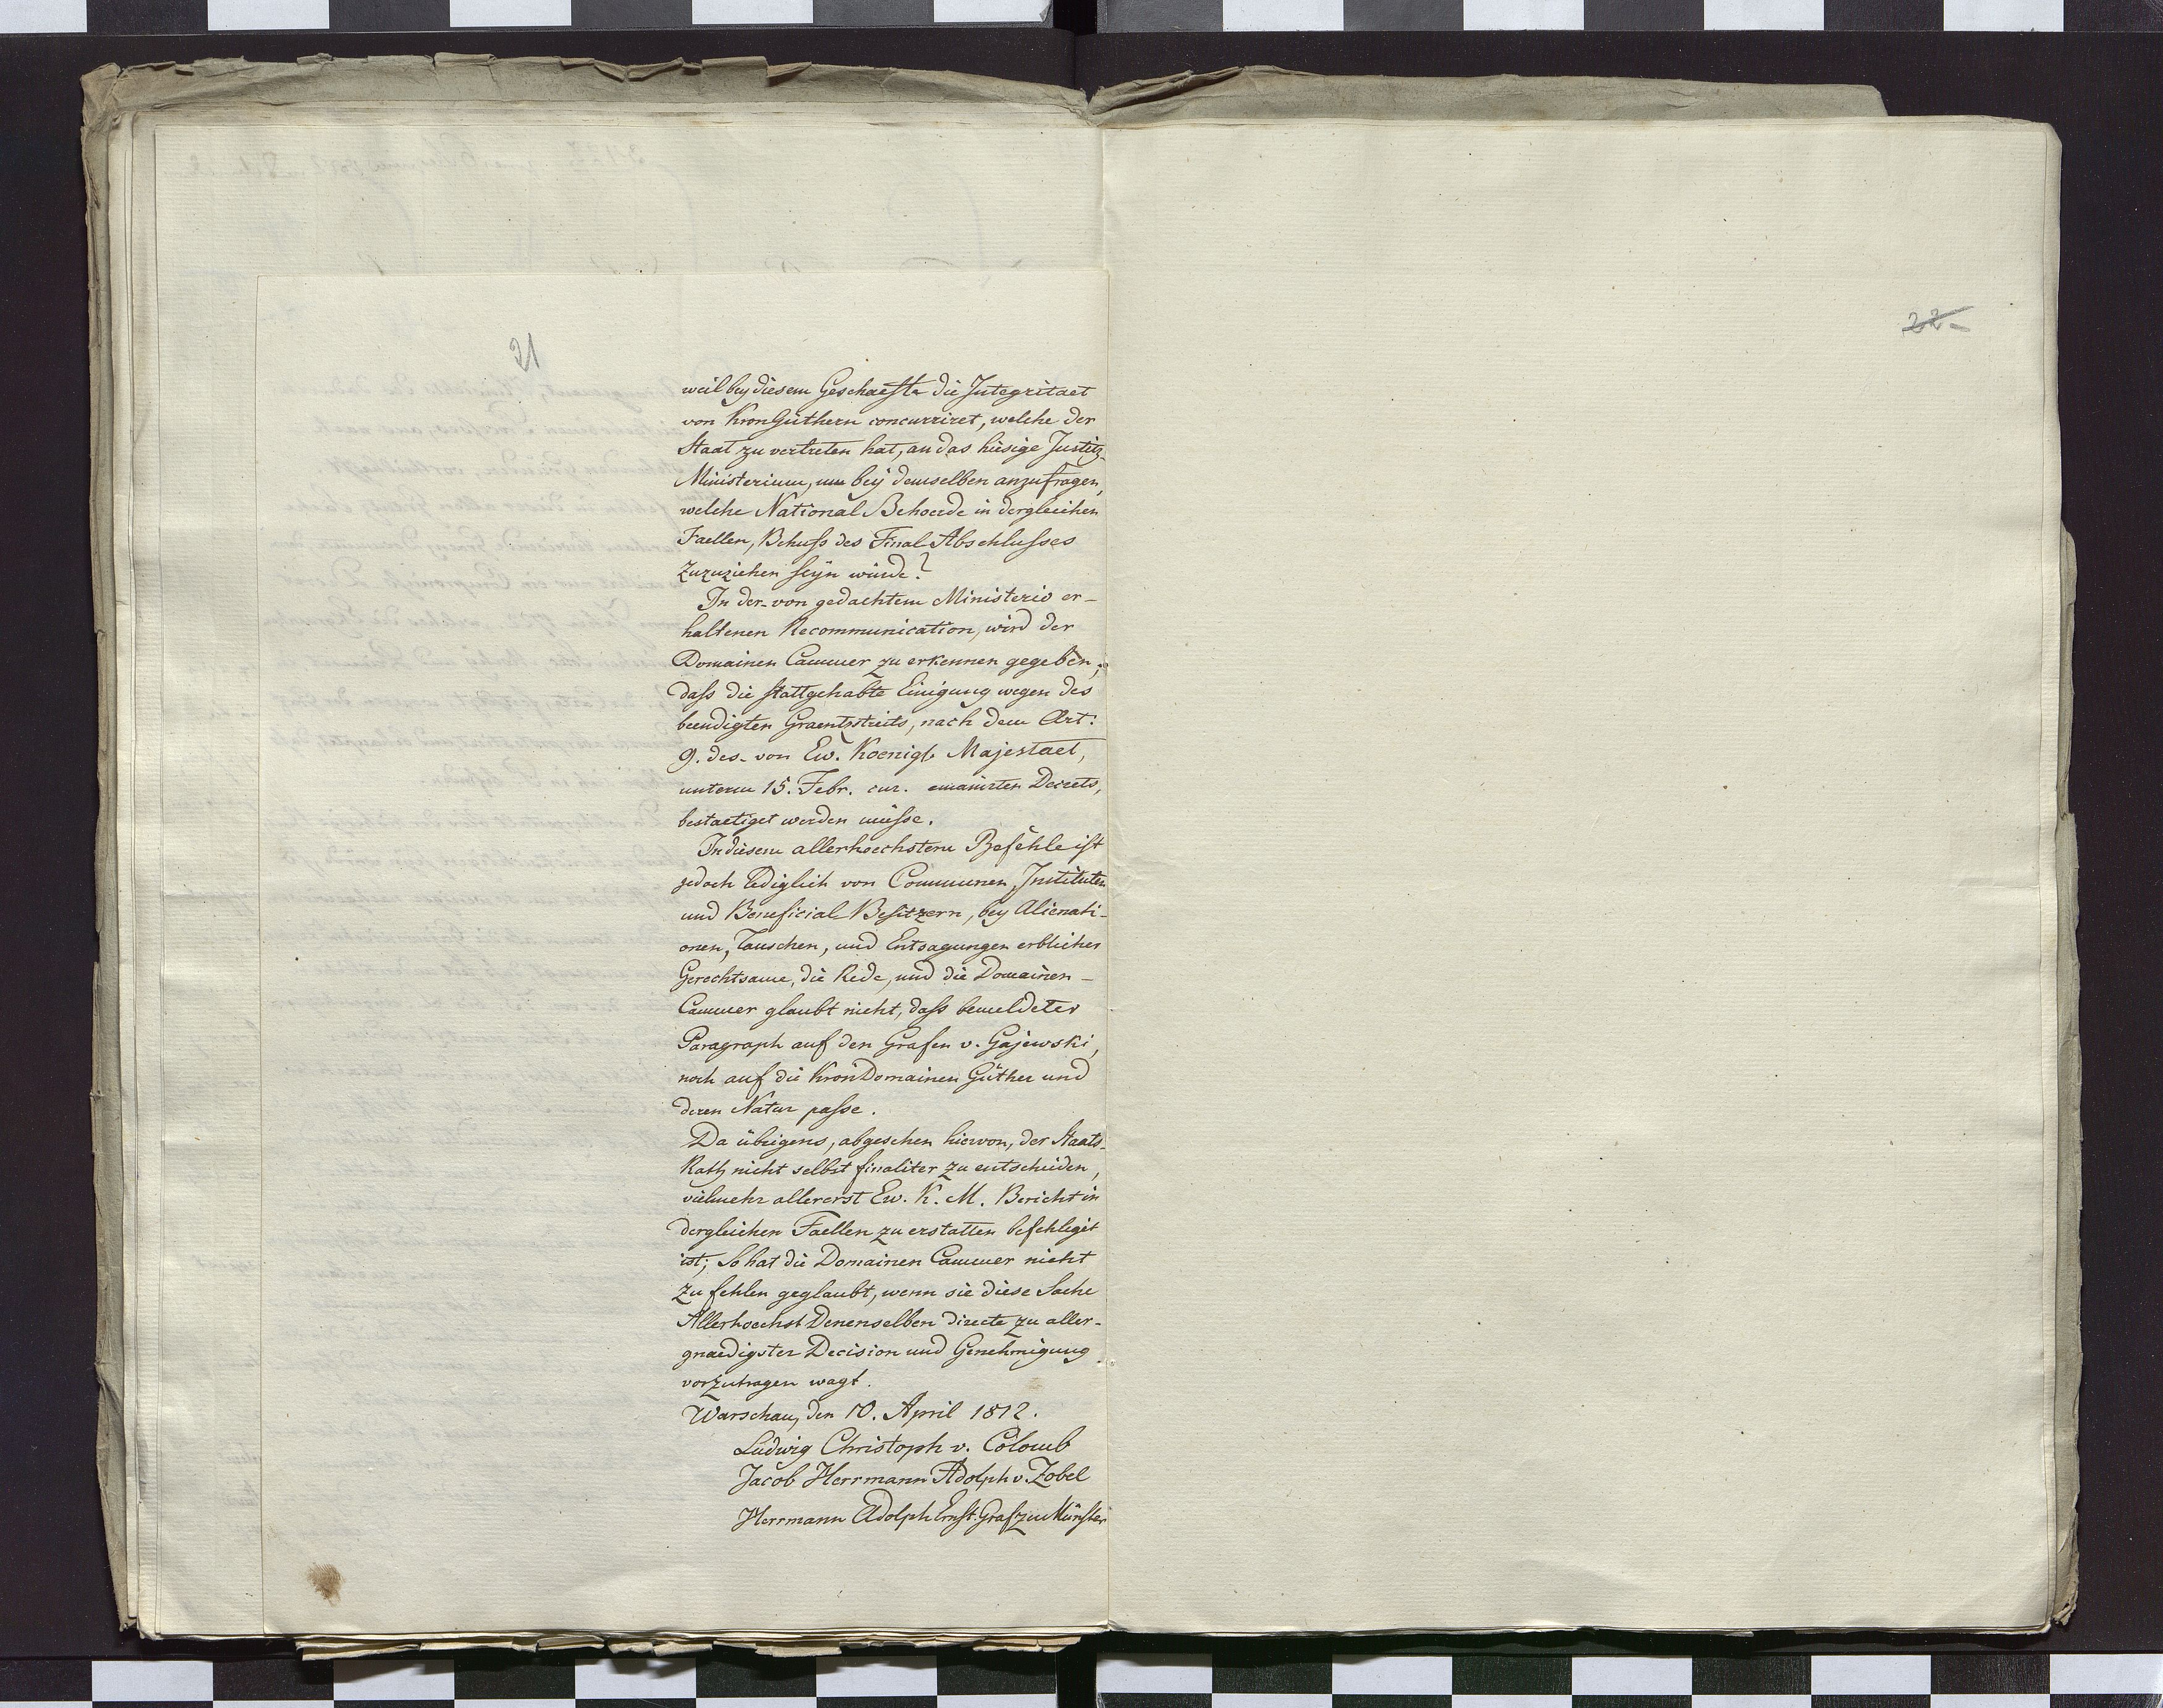 21
22
weil bey diesem Geschaefte die Integritaet
von KronGüthern concurriret, welche der
Staat zu vertreten hat, an das hiesige Justitz-
Ministerium, um bey demselben anzufragen,
welche National Behoerde in dergleichen
Faellen, Behufs des Final Abschlusses
zuzuziehen seyn würde?
In der von gedachtem Ministerio er-
haltenen Recommunication, wird der
Domainen Cammer zu erkennen gegeben;
daß die stattgehabte Einigung wegen des
beendigten Graentzstreits, nach dem Art:
9. des von Ew. Koenigl. Majestaet,
unterm 15. Febr. cur. emanirten Decrets,
bestaetiget werden müsse.
In diesem allerhoechstem Befehle ist
jedoch lediglich von Communen, Instituten
und Beneficial Besitzern, bey Alienati-
onen, Tauschen, und Entsagungen erblicher
Gerechtsame, die Rede, und die Domainen-
Cammer glaubt nicht, daß bemeldeter
Paragraph auf den Grafen v. Gajewski,
noch auf die KronDomainen Güther und
deren Natur passe.
Da übrigens, abgesehen hievon, der Staats-
Rath nicht selbst finaliter zu entscheiden,
vielmehr allererst Ew. K. M. Bericht in
dergleichen Faellen zu erstatten befehliget
ist; So hat die Domainen Cammer nicht
zu fehlen geglaubt, wenn sie diese Sache
Allerhoechst Denenselben directe zu aller-
gnaedigster Decision und Genehmigung
vorzutragen wagt.
Warschau, den 10. April 1812.
Ludwig Christoph v. Colomb
Jacob Herrmann Adolph v. Zobel
Herrmann Adolph Ernst Graf zu Münster